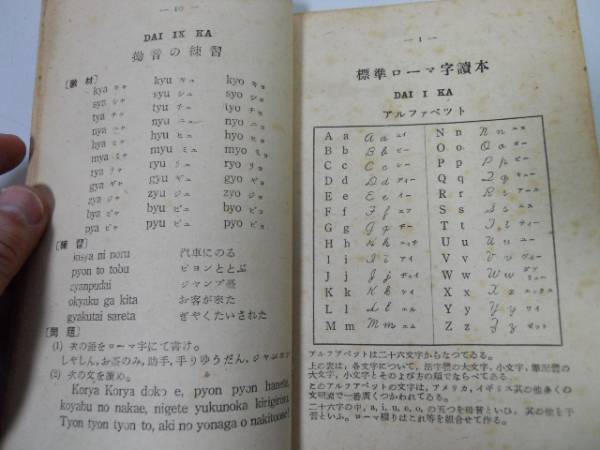 — 10 —
DAI IX KA
拗音の練習
〔教材〕
kya キャ kyu キュ kyo キョ
sya シャ syu シュ syo ショ
tya チャ tyu チュ tyo チョ
nya ニャ nyu ニュ nyo ニョ
hya ヒャ hyu ヒュ hyo ヒョ
mya ミャ myu ミュ myo ミョ
rya リャ ryu リュ ryo リョ
gya ギャ gyu ギュ gyo ギョ
zya ジャ zyu ジュ zyo ジョ
bya ビャ byu ビュ byo ビョ
pya ピャ pyu ピュ pyo ピョ
〔練習〕
kisya ni noru 汽車にのる
pyon to tobu ピヨンととぶ
zyanpudai ジャンプ臺
okyaku ga kita お客が來た
gyakutai sareta ぎやくたいされた
〔問題〕
(1) 次の語をローマ字にて書け。
しやしん, お茶のみ, 助手, 手りゆうだん,
(2) 次の文を讀め。
Korya Korya doko e, pyon pyon hanete,
koyabu no nakae, nigete yukunoka kirigirisu
Tyon tyon tyon to, aki no yonaga o nakitoose!
— 1 —
標準ローマ字讀本
DAI I KA
アルファベット
A a A a エイ N n N n エヌ
B b B b ビー O o O o オー
C c C c シー P p P p ピー
D d D d ディー Q q Q q キュー
E e E e イー R r R r アール
F f F f エフ S s S s エス
G g G g ヂー T t T t ティー
H h H h エッチ U u U u ユー
I i I i アイ V v V v ヴィー
J j J j ヂェイ W w W w ダブリュー
K k K k ケイ X x X x エックス
L l L l エル Y y Y y ワイ
M m M m エム Z z Z z
アルファベットは二十六文字からなつてゐる。
上の表は、各文字について、活字體の大文字、小文字、筆記體の
大文字、小文字とそのよび方の順でならべてある。
このアルファベットの文字は、アメリカ、イギリス其の他多くの
文明國で一番廣くつかはれてゐる。
二十六字の中、a, i, u, e, o, の五つを母音といひ、其の他を子
音といふ。ローマ綴りはこれ等を組合せて作る。